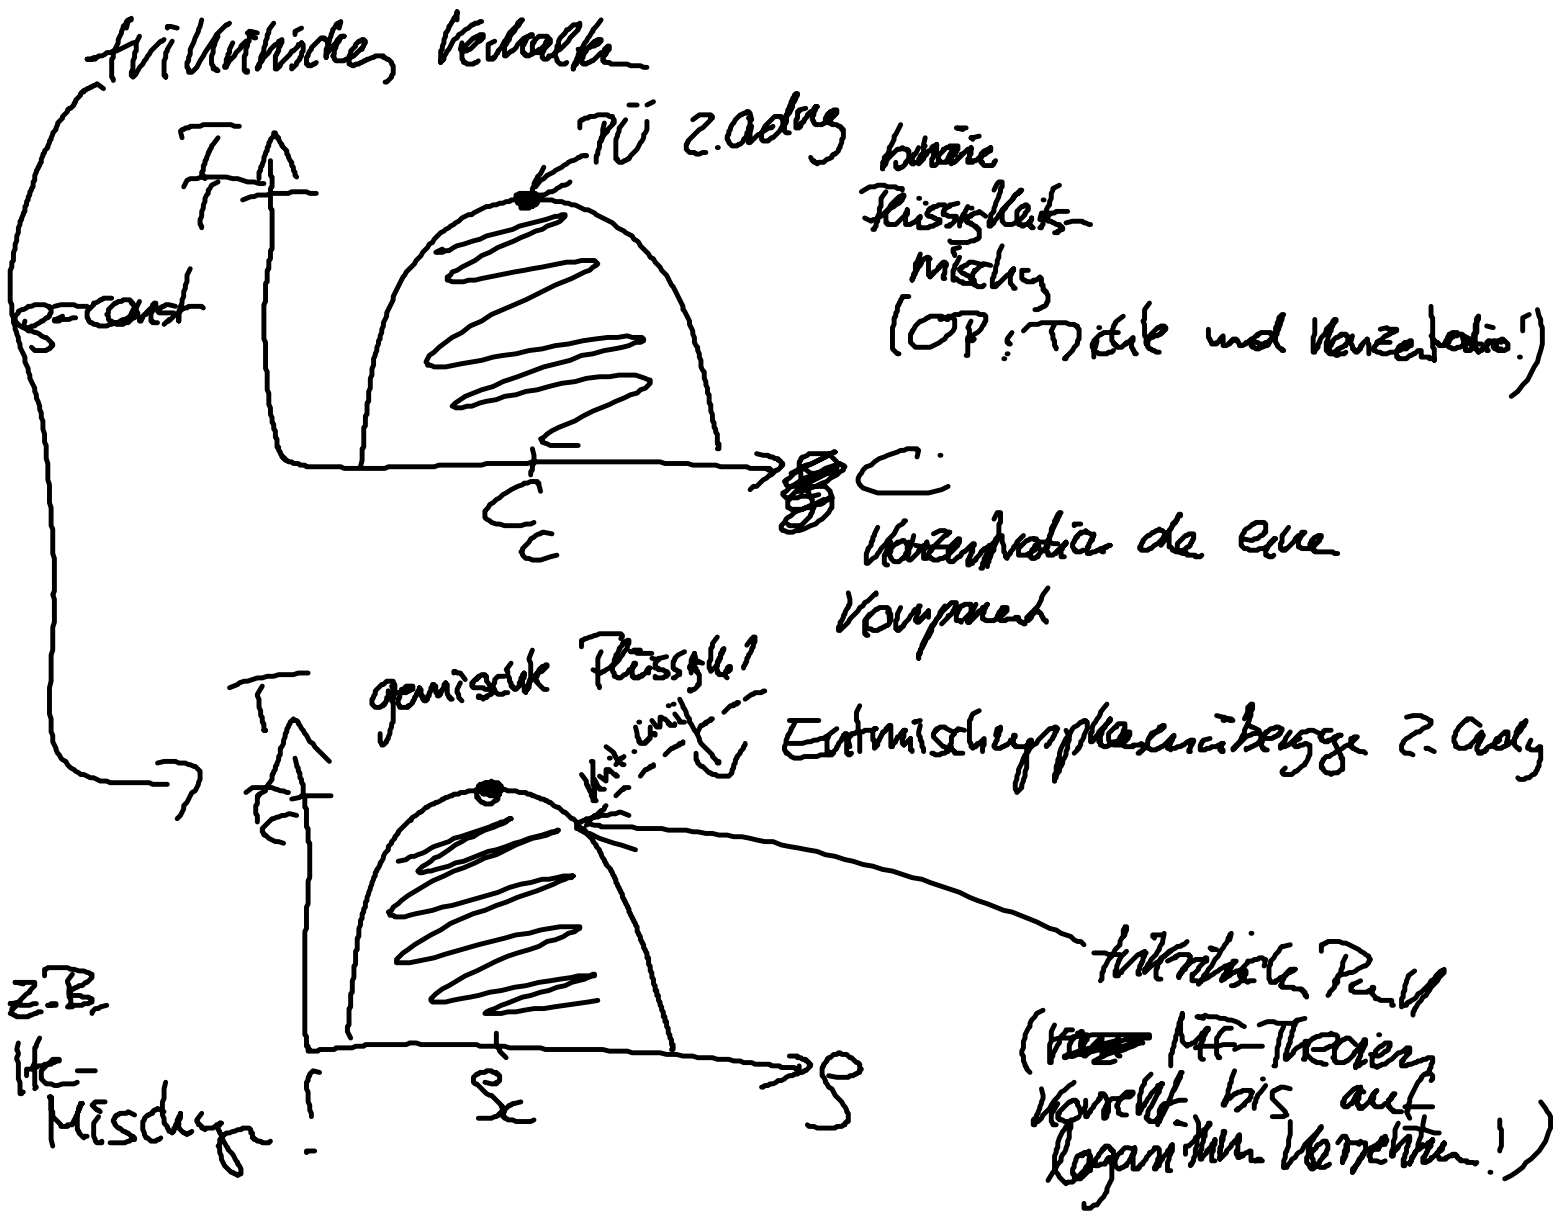 trikritisches Verhalten
T
T
PÜ 2. Ordng
binäre
Flüssigkeits-
mischg
(OP: Dichte und Konzentration!)
ρ=const
C
C
c
Konzentration der einen
Komponente
T
gemischte Flüssigk.
krit. Linie
Entmischungsphasenübergänge 2. Ordg
T
c
trikritischer Punkt
( MF-Theorien
korrekt bis auf
logarithm Korrekturen!)
z.B.
He-
Mischungen!
ρc
ρ